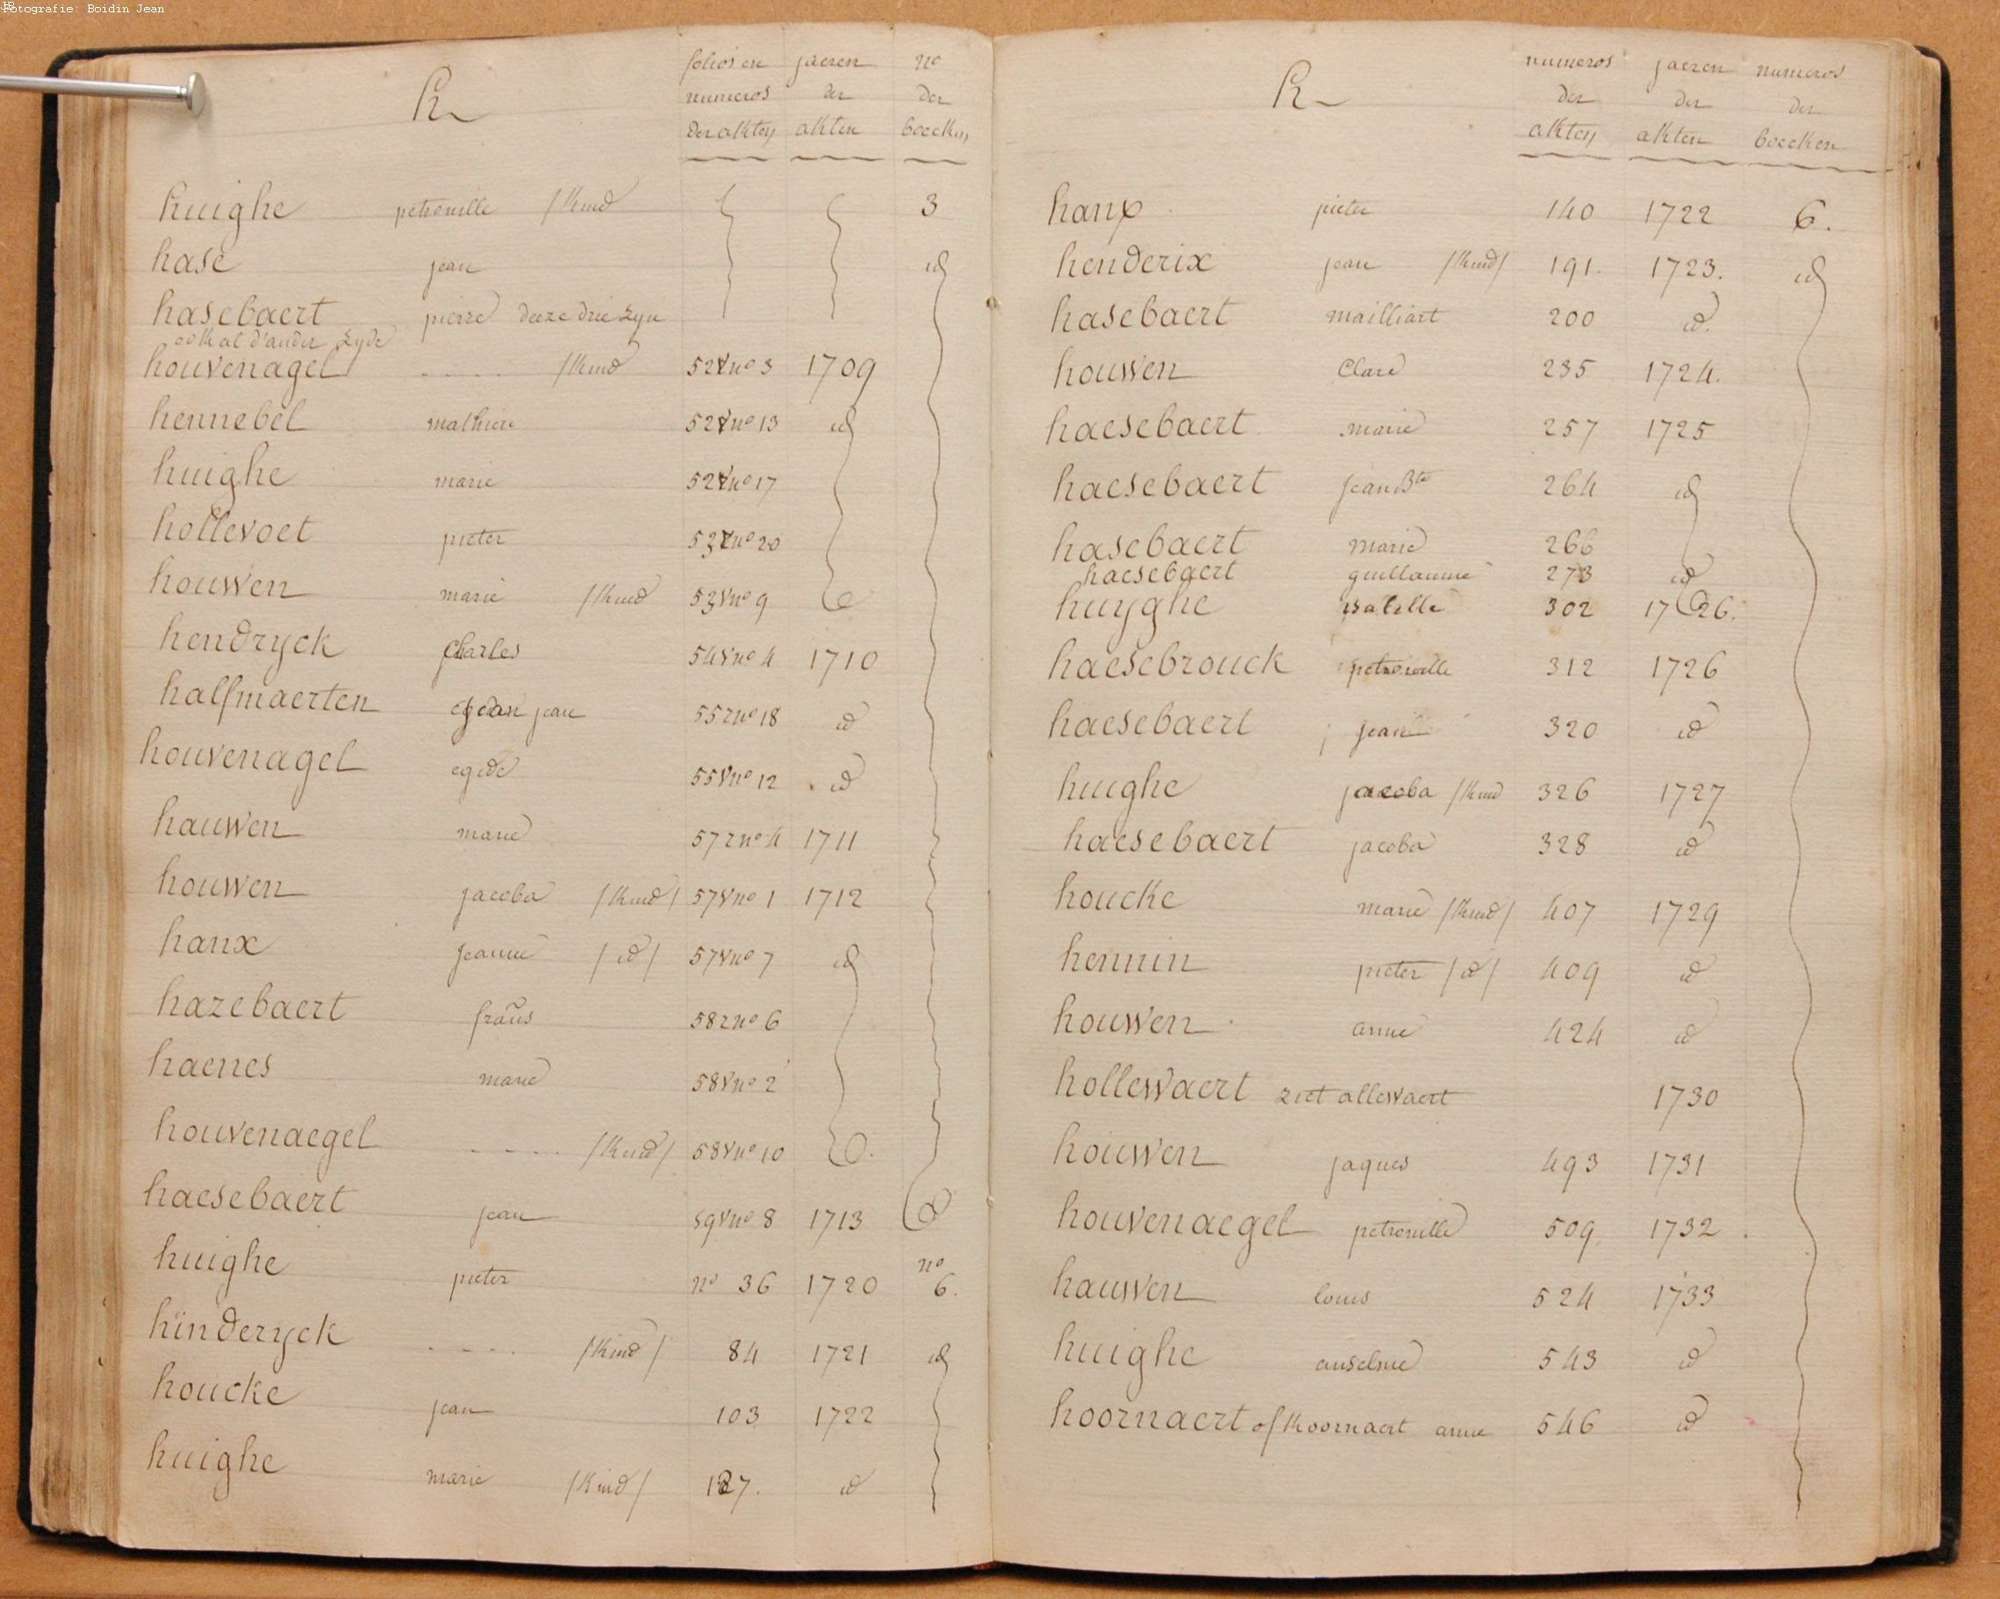 Fotografie: Boidin Jean
H folios en jaeren no
numeros der der
der akten akten boecken
huighe petronille /kind 3
hase jean id
hasebaert pierre deeze drie zyn
ook al d'ander zyde
houvenagel ..... /kind 52V no 3 1709
hennebel mathieu 52V no 13 id
huighe marie 52V no 17
hollevoet pieter 53r no 20
houwen marie /kind 53V no 9
hendryck charles 54V no 4 1710
halfmaerten jean 55r no 18 id
houvenagel egide 55V no 12 id
hauwen marie 57r no 4 1711
houwen jacoba /kind/ 57V no 1 1712
hanx jeanne /id/ 57V no 7 id
hazebaert frans 58r no 6
haenes marie 58V no 2
houvenaegel ----. /kind/ 58V no 10
haesebaert jean 59V no 8 1713
huighe pieter no 36 1720 no 6.
hinderyck ..... /kind/ 84 1721 id
houcke jean 103 1722
huighe marie /kind/ 127. id
H numeros jaeren numeros
der der der
akten akten boecken
hanx pieter 140 1722 6.
henderix jean /kind/ 191. 1723. id
hasebaert mailliart 200 id.
houwen Clare 235 1724.
haesebaert marie 257 1725
haesebaert jean Bte 264 id
hasebaert marie 266
haesebaert guillaume 273 id
huyghe isabelle 302 1726.
haesebrouck petronille 312 1726
haesebaert jean 320 id
huighe jacoba /kind 326 1727
haesebaert jacoba 328 id
houcke marie /kind/ 407 1729
hennin pieter /id/ 409 id
houwen anne 424 id
hollewaert ziet allewaert 1730
houwen jaques 493 1731
houvenaegel petronille 509 1732
hauwen louis 524 1733
huighe anselme 543 id
hoornaert of Koornaert anne 546 id